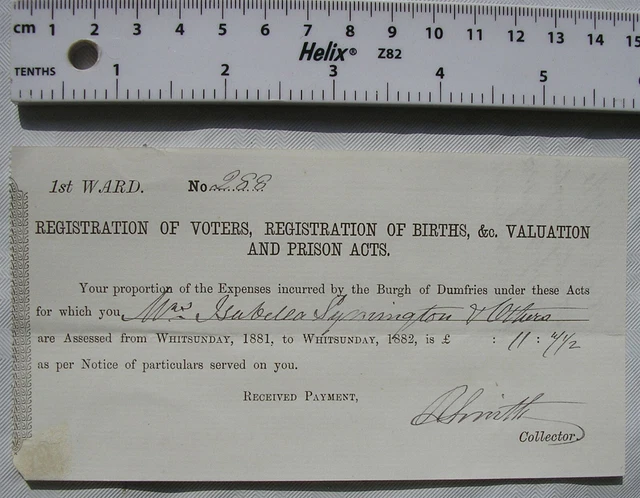 cm 1 2 3 4 5 6 7 8 9 10 11 12 13 14 15
Helix® Z82
TENTHS 1 2 3 4 5
1st WARD. No 288
REGISTRATION OF VOTERS, REGISTRATION OF BIRTHS, &c. VALUATION
AND PRISON ACTS.
Your proportion of the Expenses incurred by the Burgh of Dumfries under these Acts
for which you Mrs Isabella Symington & Others
are Assessed from WHITSUNDAY, 1881, to WHITSUNDAY, 1882, is £ : 11 : 4½
as per Notice of particulars served on you.
RECEIVED PAYMENT,
Smith
Collector